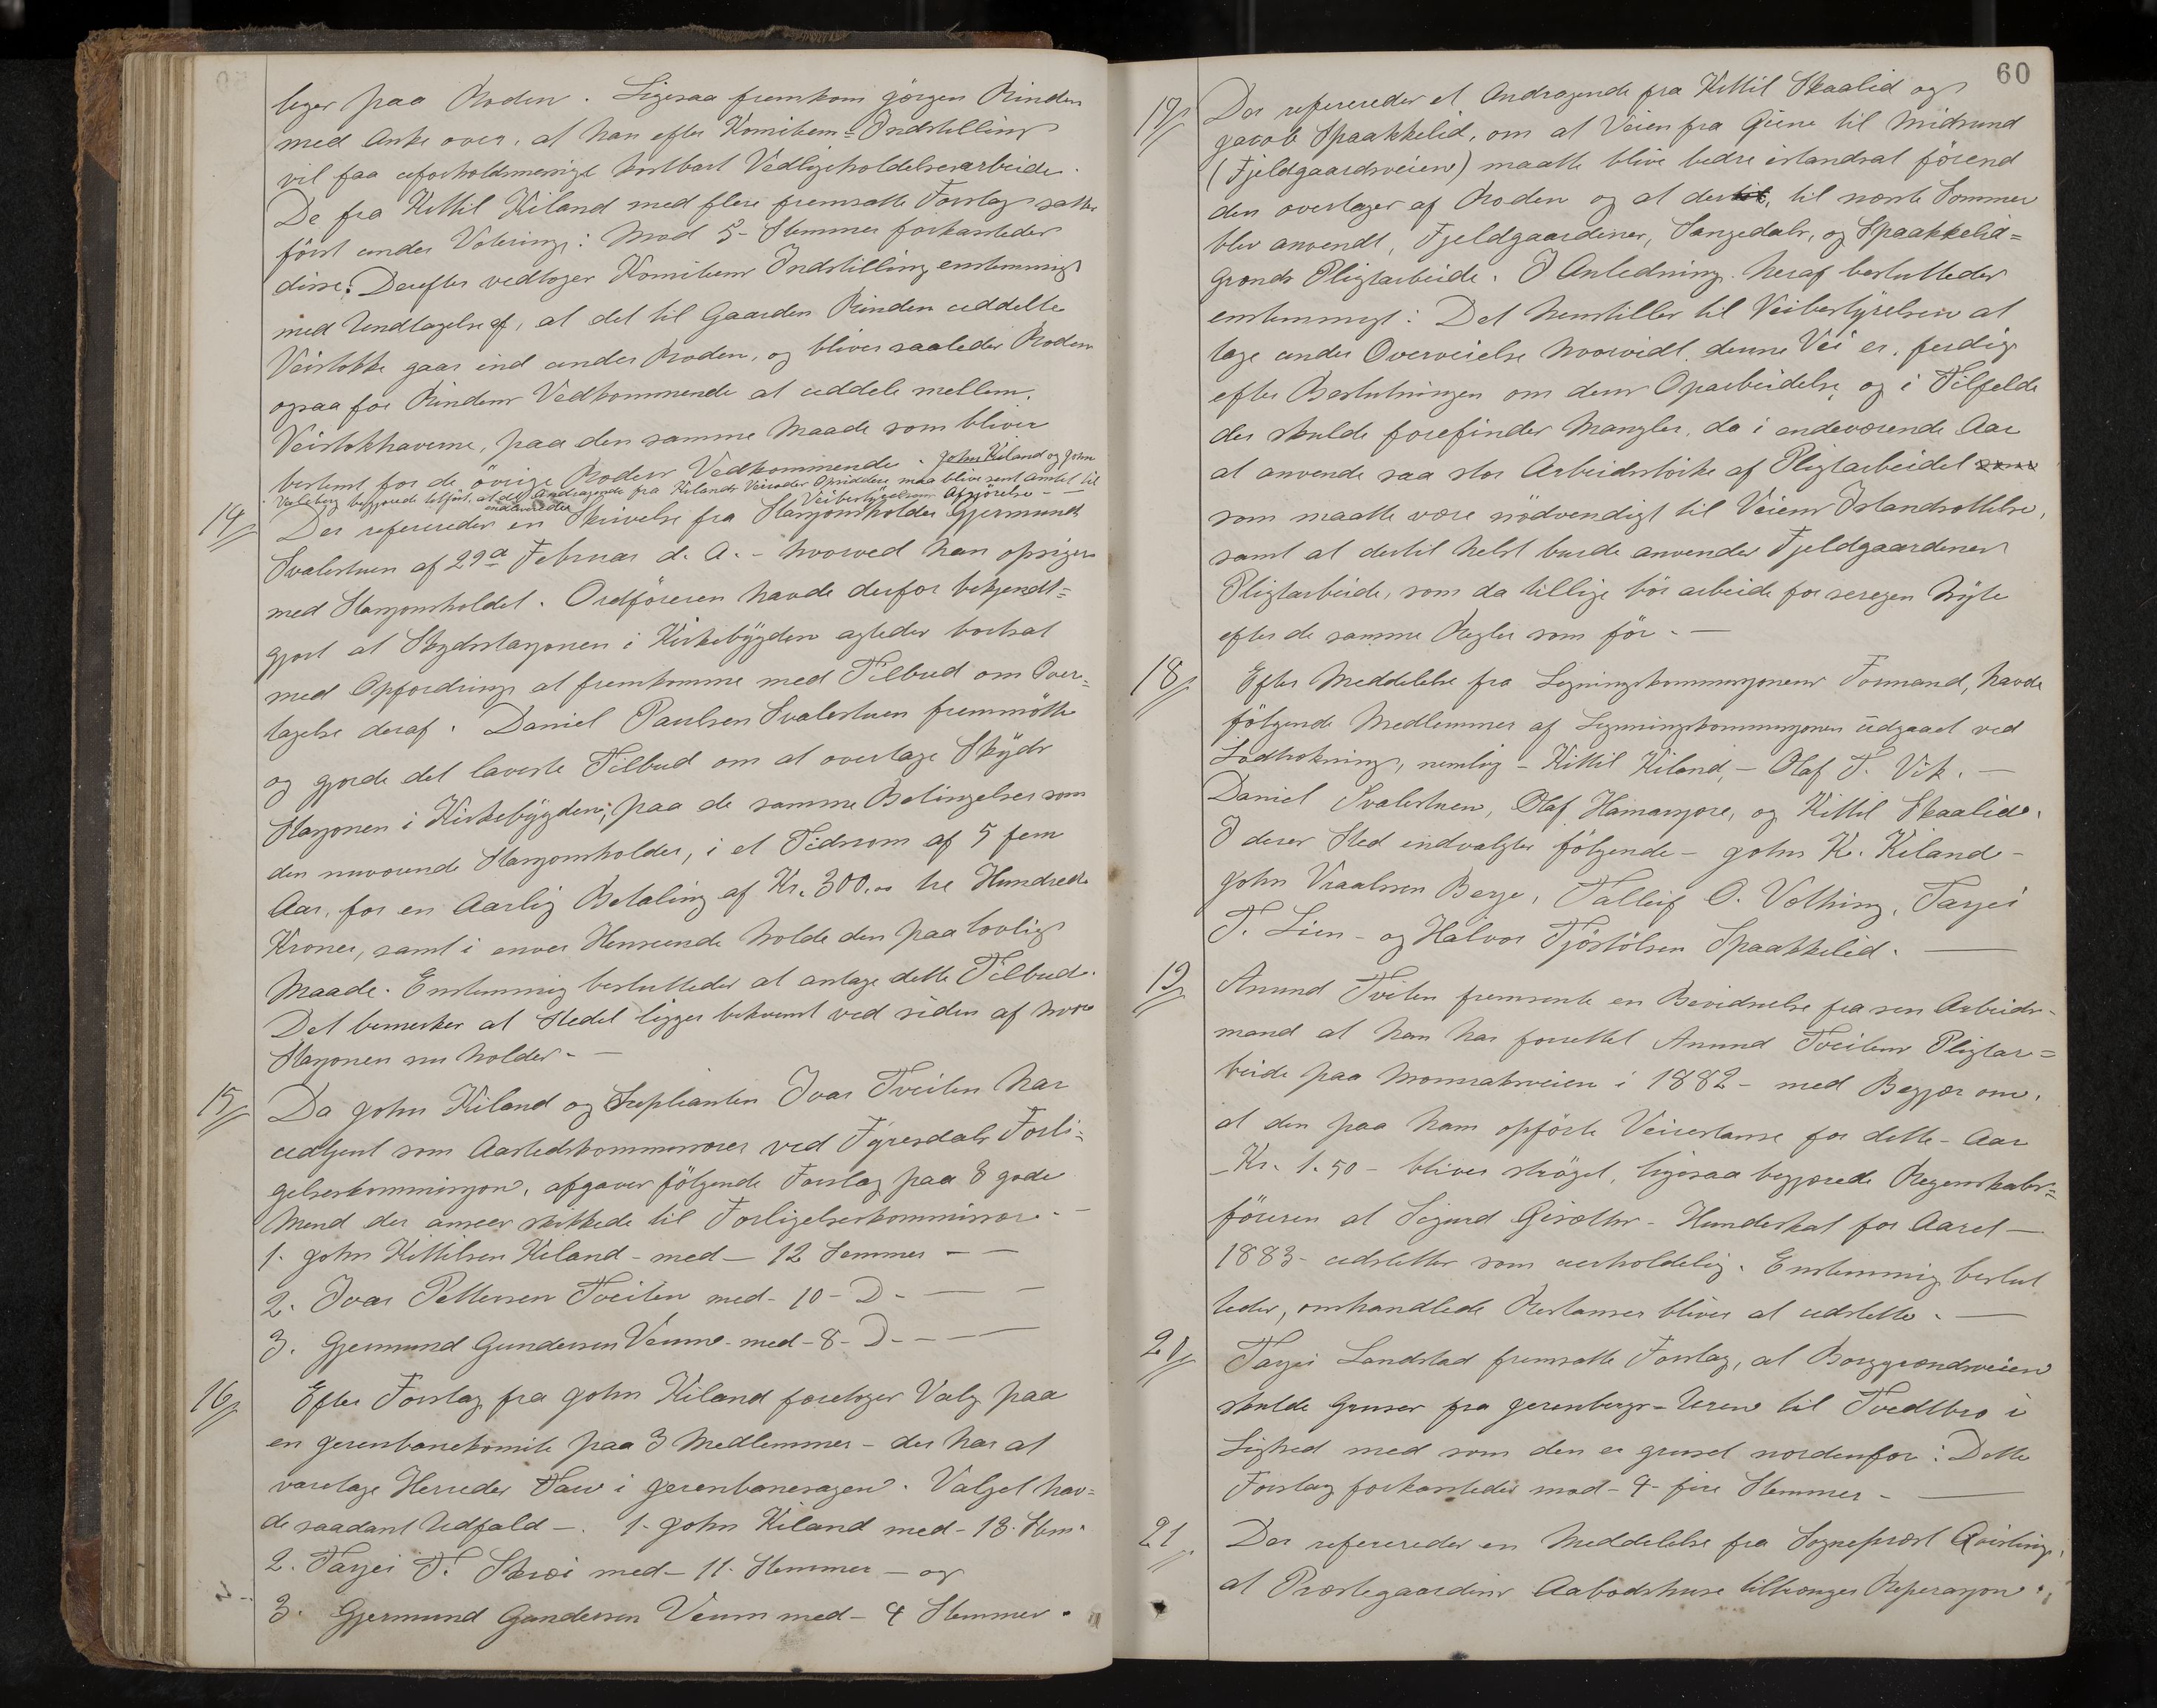 leger paa Roden. Ligesaa fremkom Jørgen Rinden
med Anke over, at han efter Komiteens Indstilling
vil faa uforholdsmesigt kostbart Vedligeholdelsesarbeide.
De fra Kittil Kiland med flere fremsatte Forslag sattes
först under Votering: Mod 5 Stemmer forkastedes
disse. Derefter vedtoges Komiteens Indstilling enstemmigt
med Undtagelse af, at det til Gaarden Rinden uddelte
Veistökke gaar ind under Roden, og bliver saaledes Roden
ogsaa for Rindens Vedkommende at uddele mellem
Veistokhaverne, paa den samme Maade som bliver
bestemt for de övrige Roders Vedkommende. John Kiland og John
begjærede tilført, at det Andragende fra Kilands Veirodes Opsiddere maa blive sent Amtet til
endvidere Veibestyrelsens Afgjörelse. —
14 Der refereredes en Skrivelse fra Stasjonsholder Gjermund
Svalestuen af 29de Februar d. A. – hvorved han opsiger
med Stasjonsholdet. Ordföreren havde derfor bekjendt=
gjort at Skydsstasjonen i Kirkebygden agtedes bortsat
med Opfordring at fremkomme med Tilbud om Over=
tagelse deraf. Daniel Paulsen Svalestuen fremmötte
og gjorde det laveste Tilbud om at overtage Skyds
Stasjonen i Kirkebygden, paa de samme Betingelser som
den nuværende Stasjonsholder, i et Tidsrom af 5 fem
Aar, for en Aarlig Betaling af Kr. 300.00 tre Hundrede
Kroner, samt i enver Henseende holde den paa lovlig
Maade. Enstemmig besluttedes at antage dette Tilbud.
Det bemerkes at Stedet ligger bekvemt ved siden af hvor
Stasjonen nu holdes. —
15 Da John Kiland og Supleanten Ivar Tveiten har
udtjent som Aastedskommissærer ved Fyresdals Forli=
gelseskommisjon, afgaves fölgende Forslag paa 3 gode
Mend der ansees skikkede til Forligelseskommissære. —
1. John Kittilsen Kiland – med – 12 Stemmer — —
2. Ivar Pettersen Tveiten med – 10 – D – — —
3. Gjermund Gundersen Veum – med – 8 – D – — —
16 Efter Forslag fra John Kiland foretoges Valg paa
en Jernbanekomite paa 3 Medlemmer – der har at
varetage Herredes Tarv i Jernbanesagen. Valget hav=
de saadant Udfald –. 1. John Kiland med – 13 Stem.
2. Tarjei T. Skræi med – 11 Stemmer – og
3. Gjermund Gundersen Veum med – 4 Stemmer.
60
17 Der refereredes et Andragende fra Kittil Skaalid og
Jacob Spaakkelid, om at Veien fra Giene til Midsund
(Fjeldgaardsveien) maatte blive bedre istandsat förend
den overtages af Roden og at dertil, til næste Sommer
blev anvendt, Fjeldgaardenes, Sangedals, og Spaakkelid=
grends Pligtarbeide. I Anledning heraf besluttedes
enstemmigt: Det henstilles til Veibestyrelsen at
tage under Overveielse hvorvidt denne Vei er ferdig
efter Beslutningen om dens Oparbeidelse, og i Tilfelde
der skulde forefindes Mangler, da i indeværende Aar
at anvende saa stor Arbeidsstörke af Pligtarbeidet
som maatte være nödvendigt til Veiens Istandsættelse,
samt at dertil helst burde anvendes Fjeldgaardenes
Pligtarbeide, som da tillige bör arbeide for seregen Nytte
efter de samme Regler som för. —
18 Efter Meddelelse fra Ligningskommisjonens Formand, havde
fölgende Medlemmer af Ligningskommisjonen udgaaet ved
Lodtrekning, nemlig – Kittil Kiland, – Olaf T. Vik. —
Daniel Svalestuen, Olaf Hamaragre, og Kittil Skaalid.
I deres Sted indvalgtes fölgende – John K. Kiland –
John Vraalsen Berge, Talleif O. Vælhing, Tarjei
T. Lien – og Halvor Tjöstölsen Spaakkelid. —
19 Anund Tveiten fremsente en Bevidnelse fra sin Arbeids=
mand at han har forrettet Anund Tveitens Pligtar=
beide paa Momrakveien i 1882 – med Begjær om,
at den paa ham opförte Veirestanse for dette – Aar
– Kr. 1.50 – bliver ströget, ligesaa begjærede Regnskabs=
föreren at Sigurd Gisötlis – Hundeskat for Aaret –
1883 – udslettes som uerholdelig. Enstemmig beslut
tedes, omhandlede Restanser bliver at udslette. —
20 Tarjei Landstad fremsatte Forslag, at Borggrændsveien
skulde Gruses fra Jerenbergs-Uren til Tvedtbro i
Lighed med som den er gruset nordenfor: Dette
Forslag forkastedes mod – 4 – fire Stemmer – —
21 Der refereredes en Meddelelse fra Sogneprest Qvisling,
at Prestegaardens Aabodshuse tiltrenges Reperasjon.